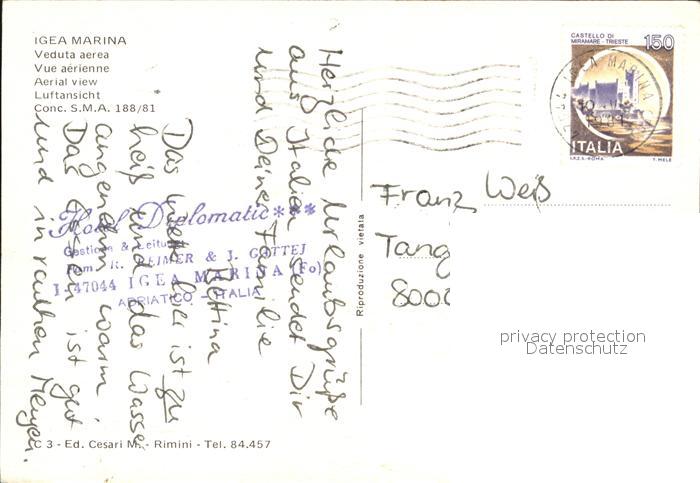 IGEA MARINA
Veduta aerea
Vue aérienne
Aerial view
Luftansicht
Conc. S.M.A. 188/81
Herzliche Urlaubsgrüße
aus Italien sendet Dir
und Deiner Familie
Bettina
Das Wetter hier ist zu
heiß und das Wasser
angenehm warm.
Das Essen ist gut
und in rauhen Mengen.
Hotel Diplomatic***
Gestione & Leitung
Fam. R. & J. GOTTEJ
I-47044 IGEA MARINA (Fo)
ADRIATICO - ITALIA
C 3 - Ed. Cesari M. - Rimini - Tel. 84.457
Riproduzione vietata
CASTELLO DI
MIRAMARE - TRIESTE
150
ITALIA
I.P.Z.S. - ROMA
T. MELE
IGEA MARINA
Franz Weiß
Tang
800
privacy protection
Datenschutz